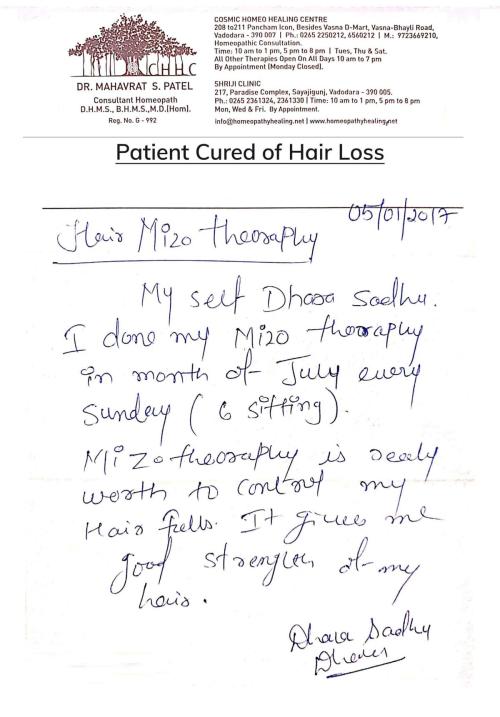 COSMIC HOMEO HEALING CENTRE
208 to211 Pancham Icon, Besides Vasna D-Mart, Vasna-Bhayli Road,
Vadodara - 390 007 | Ph.: 0265 2250212, 6560212 | M.: 9723669210,
Homeopathic Consultation.
Time: 10 am to 1 pm, 5 pm to 8 pm | Tues, Thu & Sat.
All Other Therapies Open On All Days 10 am to 7 pm
By Appointment (Monday Closed).
CHHC
DR. MAHAVRAT S. PATEL
Consultant Homeopath
D.H.M.S., B.H.M.S.,M.D.(Hom).
Reg. No. G - 992
SHRIJI CLINIC
217, Paradise Complex, Sayajigunj, Vadodara - 390 005.
Ph.: 0265 2361324, 2361330 | Time: 10 am to 1 pm, 5 pm to 8 pm
Mon, Wed & Fri. By Appointment.
info@homeopathyhealing.net | www.homeopathyhealing.net
Patient Cured of Hair Loss
05/01/2017
Hair Mizo theoraphy
My self Dhara Sadhu.
I done my Mizo theoraphy
in month of July every
Sunday ( 6 sitting).
Mizotheoraphy is really
worth to control my
Hair falls. It gives me
good strength of my
hair.
Dhara Sadhu